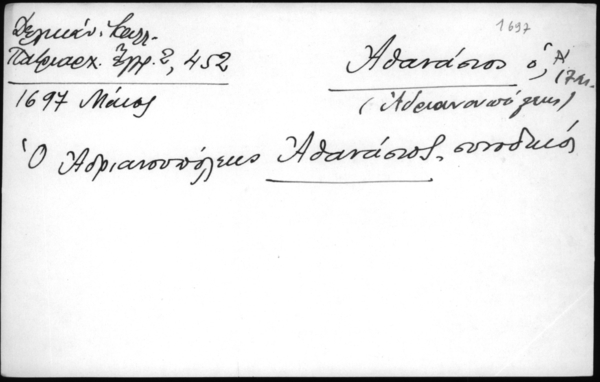 Δελικάν. Καλλ.
Πατριαρχ. Ἔγγρ. 2, 452
1697 Μάιος
1697
Ἀθανάσιος ὁ Α΄
17 αι.
(Ἀδριανουπόλεως)
Ὁ Ἀδριανουπόλεως Ἀθανάσιος, συνοδικός